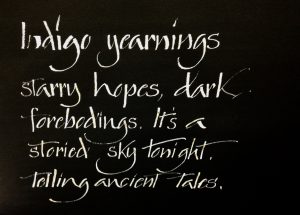 Indigo yearnings
starry hopes, dark
forebodings. It's a
storied sky tonight,
telling ancient tales.